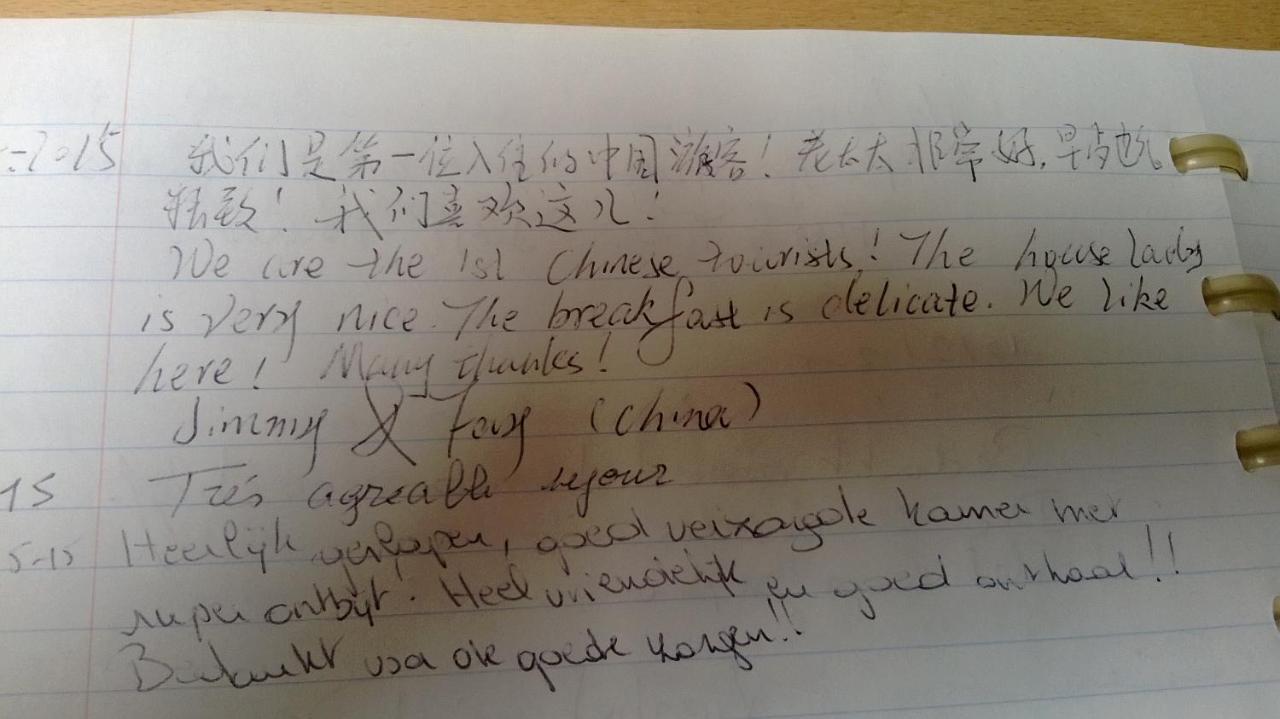 -2015 我们是第一位入住的中国游客！老太太非常好，早点也
精致！我们喜欢这儿！
We are the 1st Chinese tourists! The house lady
is very nice. The breakfast is delicate. We like
here! Many thanks!
Jimmy & Fay (China)
15 Très agreable sejour
5-15 Heerlijk geslapen, goed verzorgde kamer met
super ontbijt. Heel vriendelijk en goed onthaal!!
Bedankt voor de goede zorgen!!